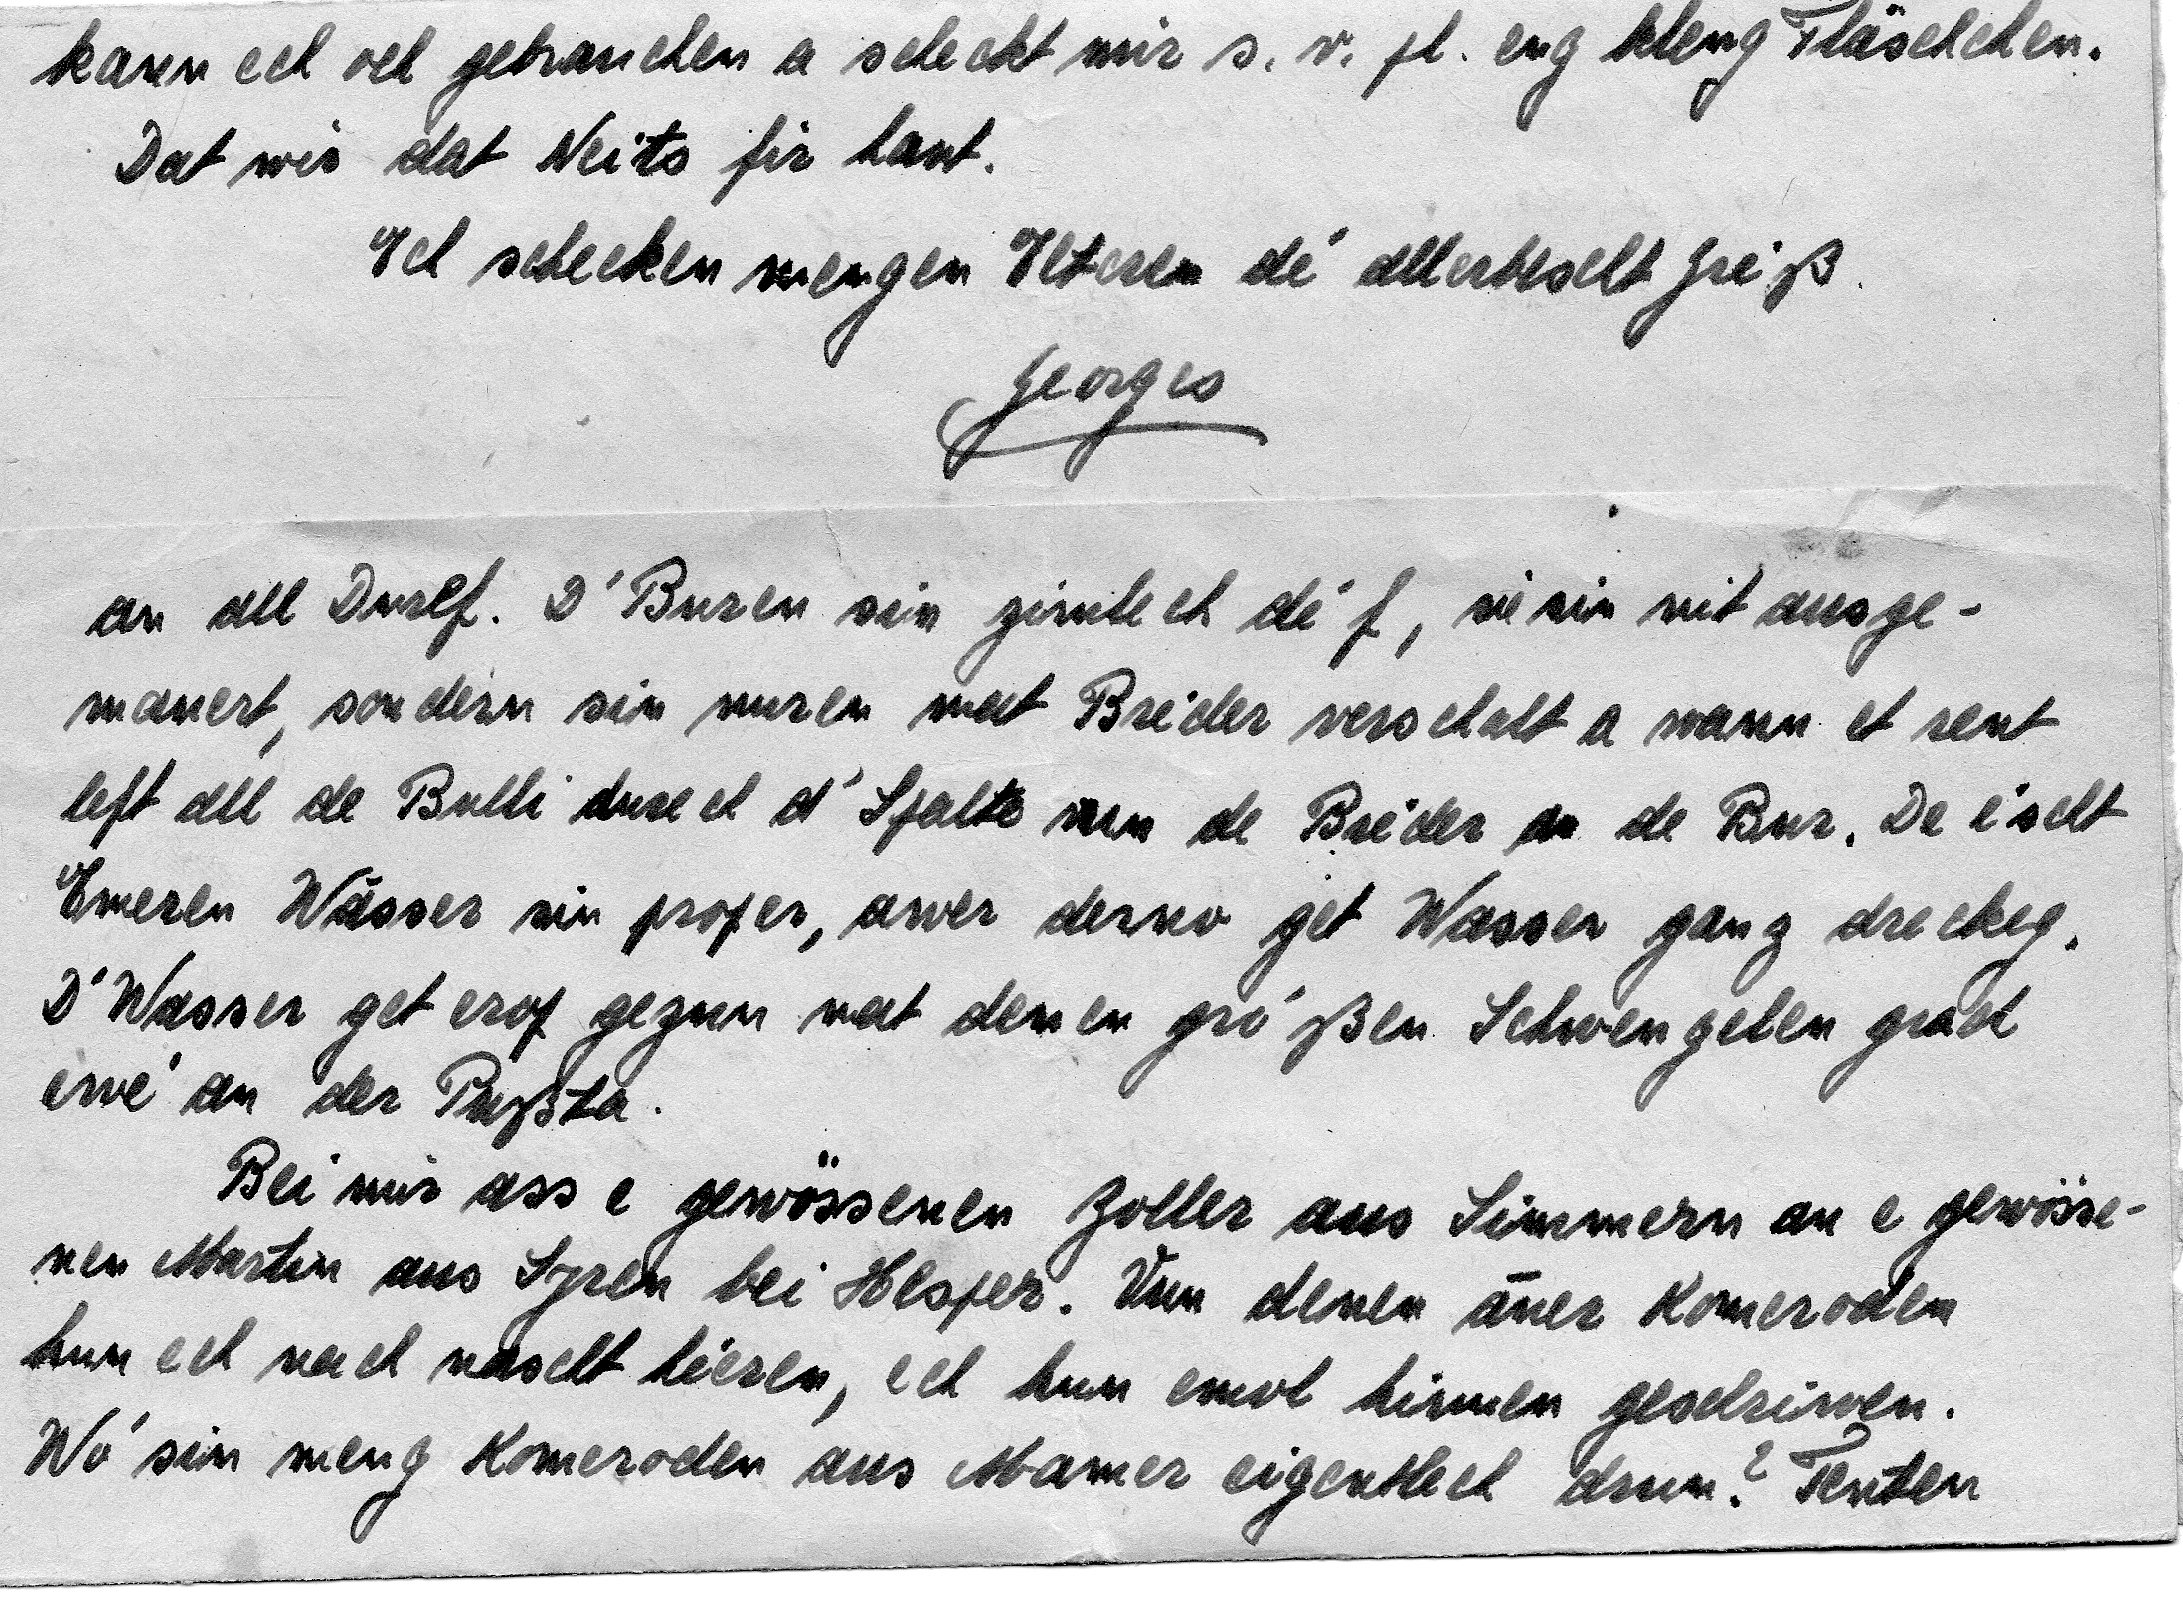 kann ech och gebrauchen a scheckt mir s. v. pl. eng kleng Fläschchen.
Dat wir dat Neits fir haut.
Ech schecken mengen Elteren dé allerbescht Gréiß.
Georges
an all Duerf. D'Buren sin zimlech déf, sie sin nit ausge-
mauert, sondern sin nuren mat Brieder verschalt a wann et rent
left all de Bulli durech d'Spalte vun de Brieder an de Bur. De éischt
Emeren Wässer sin proper, awer derno gët Wasser ganz dreckeg.
D'Wasser get erop gezun mat denen gro'ßen Schwengelen grad
ewé an der Pußta.
Bei mir ass e gewössenen Zoller aus Simmern an e gewösse-
nen Martin aus Syren bei Hesper. Vun denen āner Komeroden
hun ech nach nascht héieren, ech hun emol hinnen geschriwen.
Wó sin meng Komeroden aus Mamer eigentlech drun? Tenten